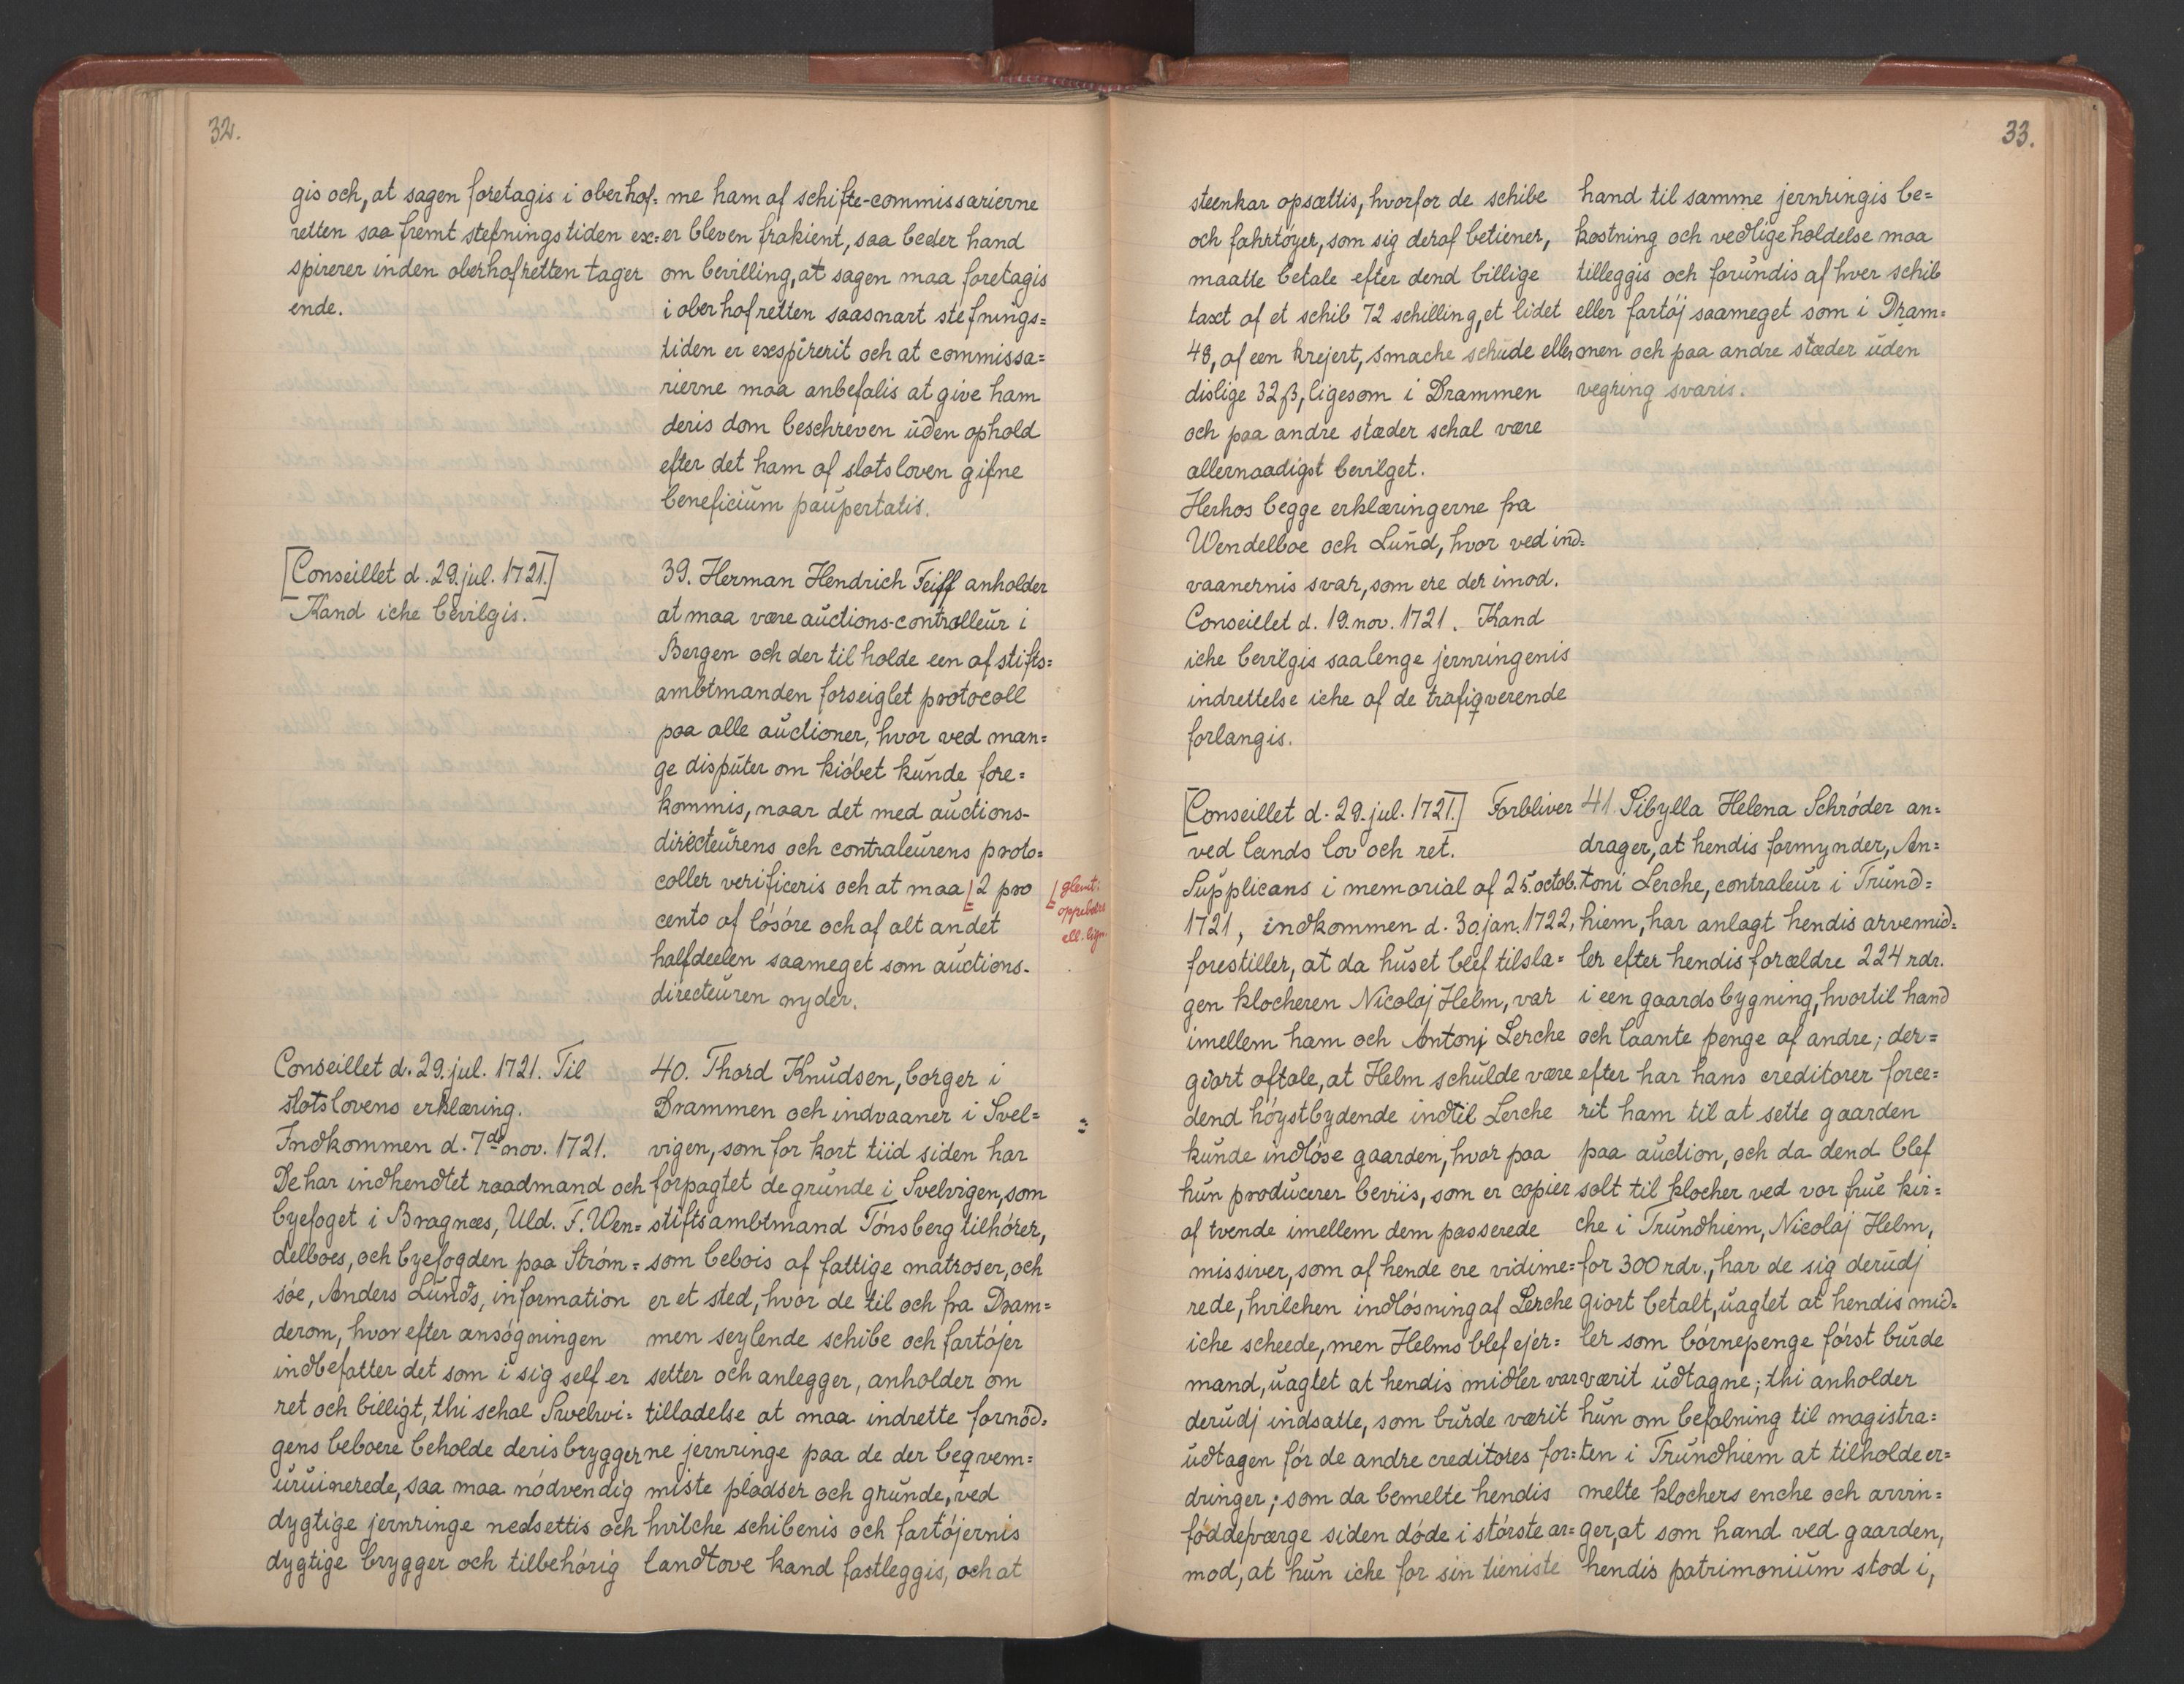 32.
gis och, at sagen foretagis i oberhof=
retten saa fremt stefningstiden ex=
spirerer inden oberhofretten tager
ende.
me ham af schifte-commissarierne
er bleven frakient, saa beder hand
om bevilling, at sagen maa foretagis
i oberhofretten saasnart stefnings=
tiden er exspirerit och at commissa=
rierne maa anbefalis at give ham
deris dom beschreven uden ophold
efter det ham af slotsloven gifne
beneficium paupertatis.
[Conseillet d. 29. jul. 1721.]
Kand iche bevilgis.
39. Herman Hendrich Feiff anholder
at maa være auctions-controlleur i
Bergen och der til holde een af stifts=
ambtmanden forseiglet protocoll
paa alle auctioner, hvor ved man=
ge disputer om kiøbet kunde fore=
kommis, naar det med auctions-
directeurens och contraleurens proto=
coller verificeris och at maa 2 pro
cento af løsøre och af alt andet
halfdeelen saameget som auctions-
directeuren nyder.
glemt:
oppebære
ell. lign.
Conseillet d. 29. jul. 1721. Til
slotslovens erklæring.
Indkommen d. 7de nov. 1721.
De har indhendtet raadmand och
byefoget i Bragnæs, Uld. F. Wen=
delboes, och byefogden paa Strøm=
søe, Anders Lunds, information
derom, hvor efter ansøgningen
indbefatter det som i sig self er
ret och billigt, thi schal Swelwi=
gens beboere beholde deris brygger
uruinerede, saa maa nødvendig
dygtige jernringe nedsettis och
dygtige brygger och tilbehørig
40. Thord Knudsen, borger i
Drammen och indvaaner i Svel=
vigen, som for kort tiid siden har
forpagtet de grunde i Svelvigen, som
stiftsambtmand Tønsberg tilhører,
som bebois af fattige matroser, och
er et sted, hvor de til och fra Dram=
men seylende schibe och fartøjer
setter och anlegger, anholder om
tilladelse at maa indrette fornød=
ne jernringe paa de der beqvem=
miste pladser och grunde, ved
hvilche schibenis och fartøjernis
landtove kand fastleggis, och at
33.
steenkar opsættis, hvorfor de schibe
och fahrtøyer, som sig deraf betiener,
maatte betale efter dend billige
taxt af et schib 72 schilling, et lidet
48, af een krejert, smache schude eller
dislige 32 β, ligesom i Drammen
och paa andre stæder schal være
allernaadigst bevilget.
Herhos begge erklæringerne fra
Wendelboe och Lund, hvor ved ind=
vaanernis svar, som ere der imod.
Conseillet d. 19. nov. 1721. Kand
iche bevilgis saalenge jernringenis
indrettelse iche af de trafiqverende
forlangis.
hand til samme jernringis be=
kostning och vedligeholdelse maa
tilleggis och forundis af hver schib
eller fartøj saameget som i Dram=
men och paa andre stæder uden
vegring svaris.
[Conseillet d. 29. jul. 1721.] Forbliver
ved lands lov och ret.
Supplicans i memorial af 25. octob.
1721, indkommen d. 30. jan. 1722,
forestiller, at da huset blef tilsla=
gen klocheren Nicolaj Helm, var
imellem ham och Antonj Lerche
giort aftale, at Helm schulde være
dend høystbydende indtil Lerche
kunde indløse gaarden, hvor paa
hun producerer beviis, som er copier
af tvende imellem dem passerede
missiver, som af hende ere vidime=
rede, hvilchen indløsning af Lerche
iche scheede, men Helms blef ejer=
mand, uagtet at hendis midler var
derudj indsatte, som burde værit
udtagen før de andre creditores for=
dringer; som da bemelte hendis
føddeværge siden døde i største ar=
mod, at hun iche for sin tieniste
41. Sibylla Helena Schrøder an=
drager, at hendis formynder, An=
toni Lerche, contraleur i Trund=
hiem, har anlagt hendis arvemid=
ler efter hendis forældre 224 rdr.
i een gaards bygning, hvortil hand
och laante penge af andre; der=
efter har hans creditorer force=
rit ham til at sette gaarden
paa auction, och da dend blef
solt til klocher ved vor frue kir=
che i Trundhiem, Nicolaj Helm,
for 300 rdr., har de sig derudj
giort betalt, uagtet at hendis mid=
ler som børnepenge først burde
værit udtagne; thi anholder
hun om befalning til magistra=
ten i Trundhiem at tilholde er=
melte klochers enche och arvin=
ger, at som hand ved gaarden,
hendis patrimonium stod i,